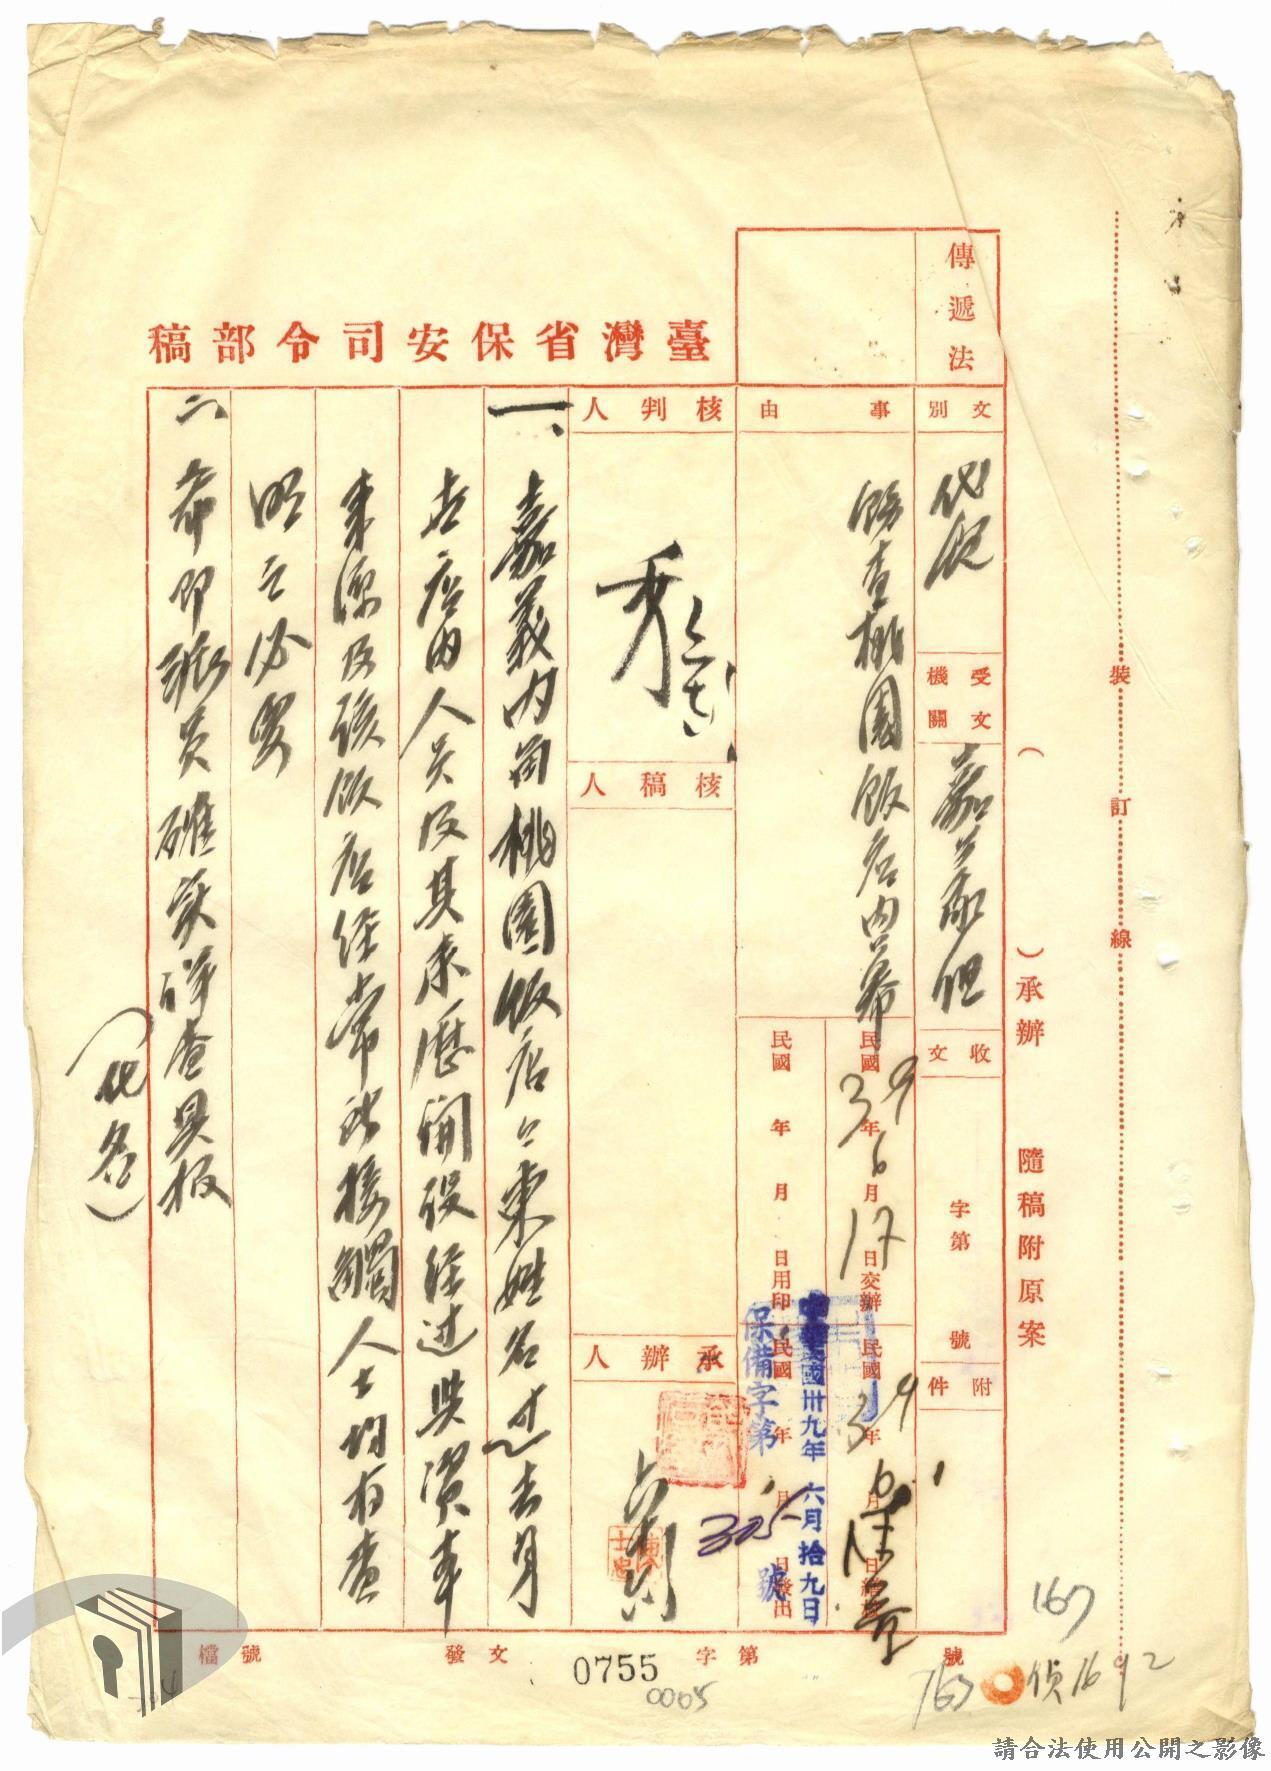 臺灣省保安司令部稿
傳遞法
文別
代電
受文機關
嘉義組
收文
字第
號
附件
事由
飭查桃園飯店內幕
民國39年6月17日交辦
民國39年6月
民國 年 月 日用印
民國 年 月 日發出
中華民國卅九年六月拾九日
保備字第
305
號
核判人
核稿人
承辦人
一、嘉義內角桃園飯店店東姓名过去身
世店內人員及其來歷開設経过與資本
來源及該飯店経常所接觸人士均有查
明之必要
二、希即派員確實詳查具报
(化名)
檔號
發文
字第
號
0755
0005
裝
訂
線
( )承辦
隨稿附原案
167
763
偵1692
請合法使用公開之影像